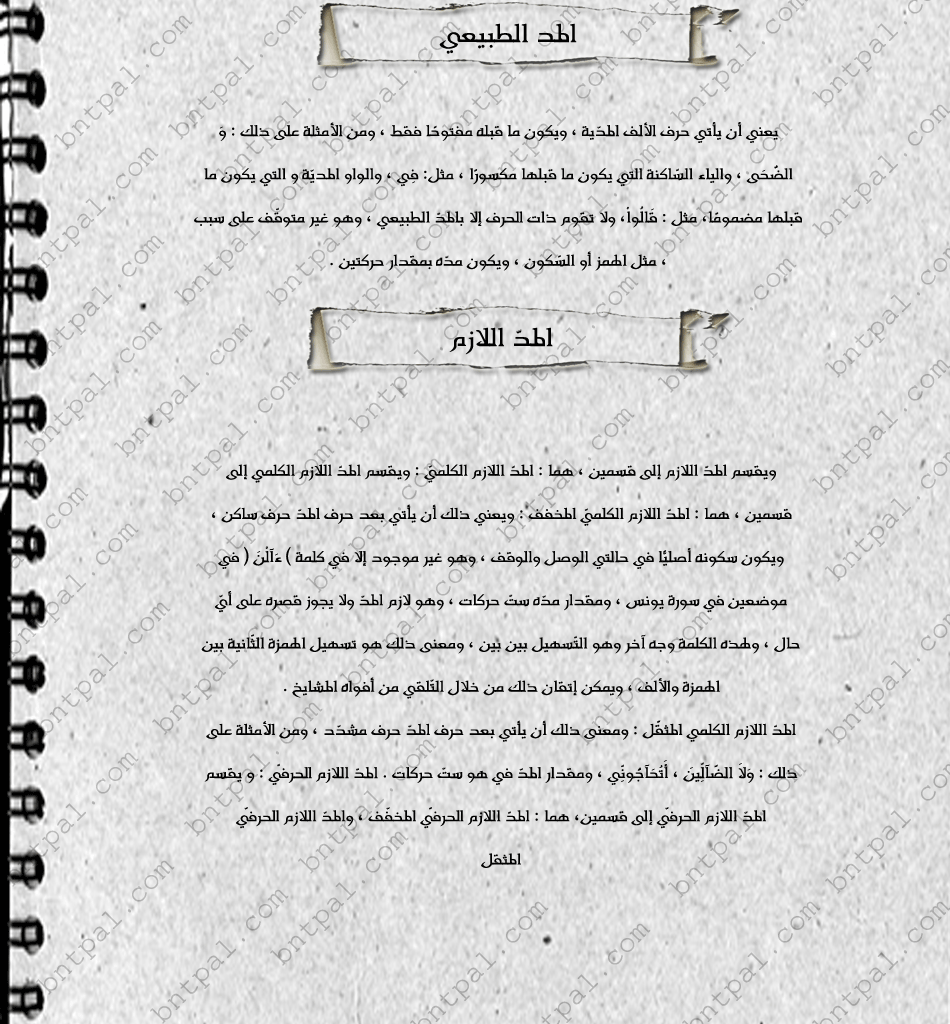 المد الطبيعي
يعني أن يأتي حرف الألف المدّية ، ويكون ما قبله مفتوحًا فقط ، ومن الأمثلة على ذلك : وَ
الضُحَى ، والياء السّاكنة التي يكون ما قبلها مكسورًا ، مثل: فِي ، والواو المديّة و التي يكون ما
قبلها مضمومًا، مثل : قَالُواْ، ولا تقوم ذات الحرف إلا بالمدّ الطبيعي ، وهو غير متوقّف على سبب
، مثل الهمز أو السّكون ، ويكون مدّه بمقدار حركتين .
المدّ اللازم
ويقسم المدّ اللازم إلى قسمين ، هما : المدّ اللازم الكلميّ : ويقسم المدّ اللازم الكلمي إلى
قسمين ، هما : المدّ اللازم الكلميّ المخفف : ويعني ذلك أن يأتي بعد حرف المدّ حرف ساكن ،
ويكون سكونه أصليًا في حالتي الوصل والوقف ، وهو غير موجود إلا في كلمة ) ءَآلْنَ ( في
موضعين في سورة يونس ، ومقدار مدّه ستّ حركات ، وهو لازم المدّ ولا يجوز قصره على أيّ
حال ، ولهذه الكلمة وجه آخر وهو التّسهيل بين بين ، ومعنى ذلك هو تسهيل الهمزة الثّانية بين
الهمزة والألف ، ويمكن إتقان ذلك من خلال التّلقي من أفواه المشايخ .
المدّ اللازم الكلمي المثقّل : ومعنى ذلك أن يأتي بعد حرف المدّ حرف مشدّد ، ومن الأمثلة على
ذلك : وَلاَ الضّآلِّينَ ، أَتُحَآجُونِّي ، ومقدار المدّ في هو ستّ حركات . المدّ اللازم الحرفيّ : و يقسم
المدّ اللازم الحرفيّ إلى قسمين، هما : المدّ اللازم الحرفيّ المخفّف ، والمدّ اللازم الحرفيّ
المثقل
bntpal.com